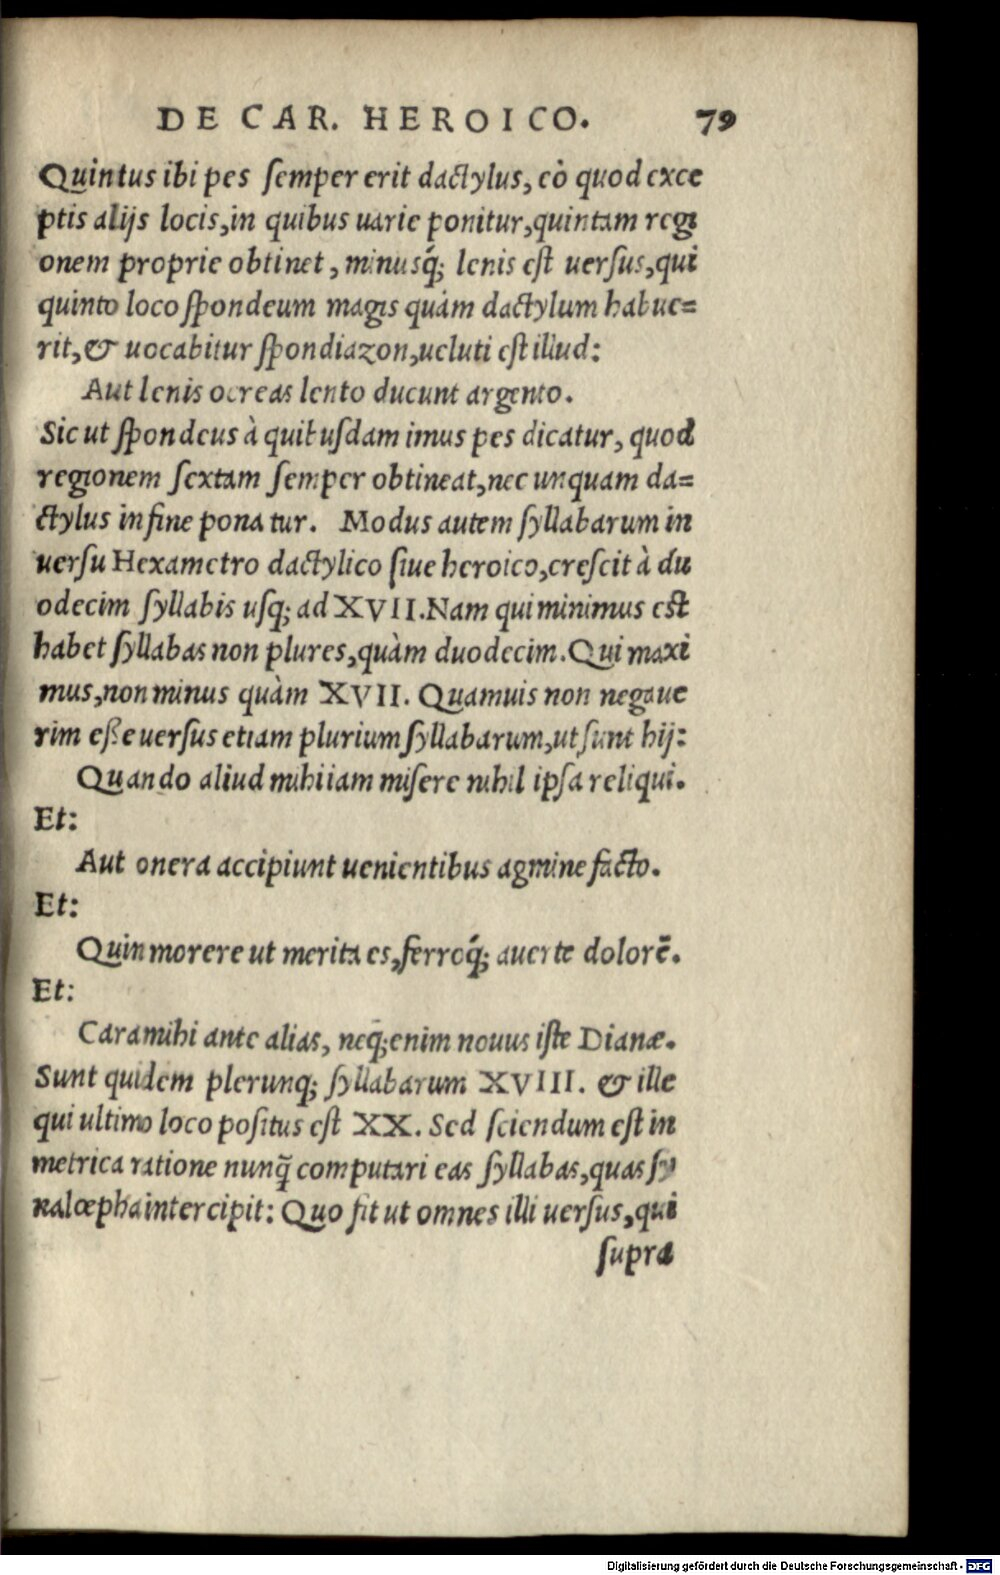 DE CAR. HEROICO. 79
Quintus ibi pes semper erit dactylus, eò quod exce
ptis alijs locis, in quibus uarie ponitur, quintam regi
onem proprie obtinet, minusq́; lenis est uersus, qui
quinto loco spondeum magis quàm dactylum habue=
rit, & uocabitur spondiazon, ueluti est illud:
Aut lenis ocreas lento ducunt argento.
Sic ut spondeus à quibusdam imus pes dicatur, quod
regionem sextam semper obtineat, nec unquam da=
ctylus in fine ponatur. Modus autem syllabarum in
uersu Hexametro dactylico siue heroico, crescit à du
odecim syllabis usq; ad XVII. Nam qui minimus est
habet syllabas non plures, quàm duodecim. Qui maxi
mus, non minus quàm XVII. Quamuis non negaue
rim esse uersus etiam plurium syllabarum, ut sunt hij:
Quando aliud mihi iam misere nihil ipsa reliqui.
Et:
Aut onera accipiunt uenientibus agmine facto.
Et:
Quin morere ut merita es, ferroq́; auerte dolorē.
Et:
Cara mihi ante alias, neq; enim nouus iste Dianæ.
Sunt quidem plerunq; syllabarum XVIII. & ille
qui ultimo loco positus est XX. Sed sciendum est in
metrica ratione nunq̃ computari eas syllabas, quas sy
nalœpha intercipit: Quo fit ut omnes illi uersus, qui
supra
Digitalisierung gefördert durch die Deutsche Forschungsgemeinschaft - DFG